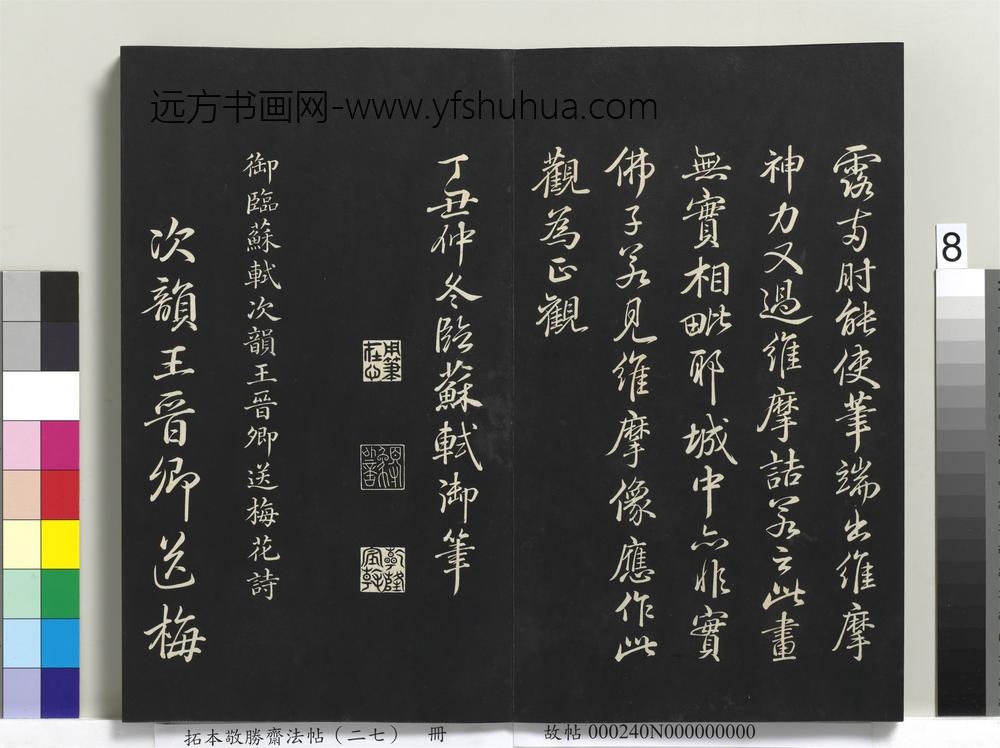 远方书画网-www.yfshuhua.com
露時能使筆端出維摩
神力又過維摩詰若云此畫
無實相毗耶城中亦非實
佛子若見維摩像應作此
觀為正觀
丁丑仲冬臨蘇軾御筆
用筆在心
乾隆宸翰
御臨蘇軾次韻王晉卿送梅花詩
次韻王晉卿送梅
8
拓本敬勝齋法帖（二七） 冊
故帖 000240N000000000